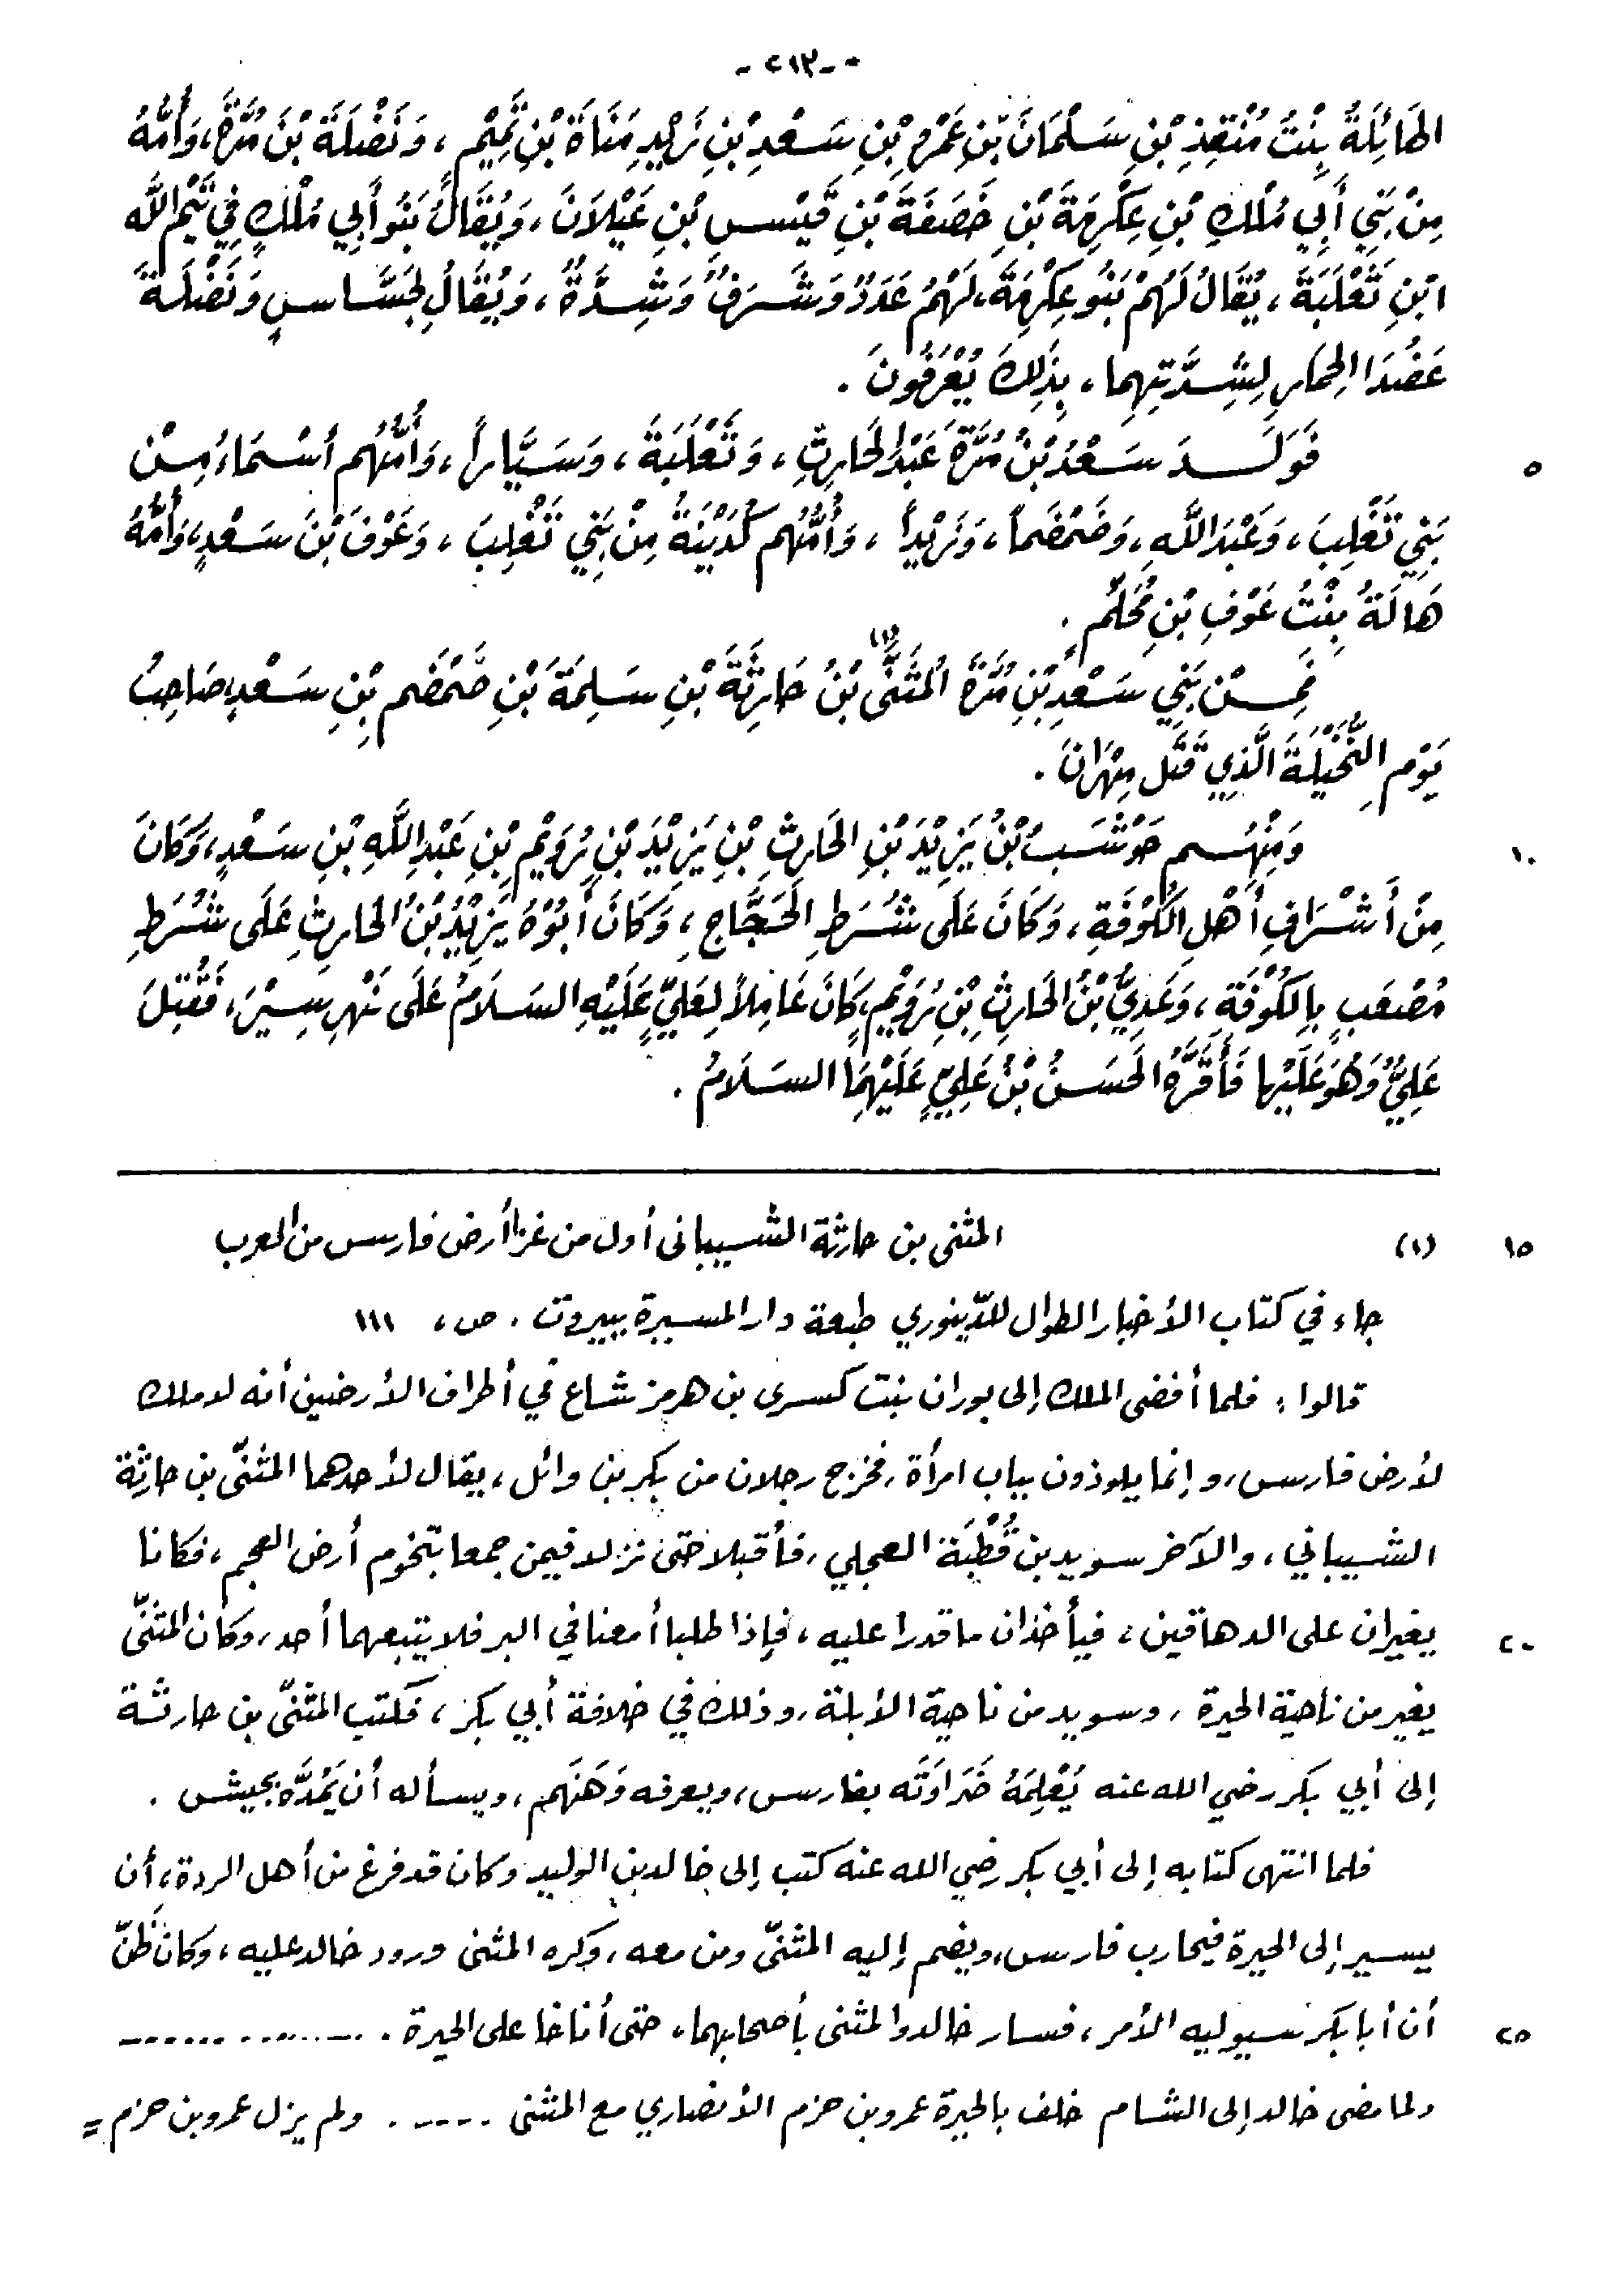 - ٢١٣ -
الهَائِلَةُ بِنْتُ مُنْقِذِ بْنِ سَلْمَانَ بْنِ عَمْرِو بْنِ سَعْدِ بْنِ زَيْدِ مَنَاةَ بْنِ تَمِيْمٍ، وَنَضْلَةَ بْنَ مُرَّةَ، وَأُمُّهُ
مِنْ بَنِي أَبِي مُلْكِ بْنِ عِكْرِمَةَ بْنِ خَصَفَةَ بْنِ قَيْسِ بْنِ عَيْلَانَ، وَيُقَالُ بَنُو أَبِي مُلْكٍ فِي تَيْمِ اللَّه
ابْنِ ثَعْلَبَةَ، يُقَالُ لَهُمْ بَنُو عِكْرِمَةَ، لَهُمْ عَدَدٌ وَشَرَفٌ وَشِدَّةٌ، وَيُقَالُ لِجَسَّاسٍ وَنَضْلَةَ
عَضُدَا الحِمَارِ لِشِدَّتِهِمَا، بِذَلِكَ يُعْرَفُونَ .
فَوَلَدَ سَعْدُ بْنُ مُرَّةَ عَبْدَ الحَارِثِ، وَثَعْلَبَةَ، وَسَيَّاراً، وَأُمُّهُم أَسْمَاءُ مِنْ ٥
بَنِي تَغْلِبَ، وَعَبْدَ اللَّهِ، وَضَمْضَماً، وَزَيْداً، وَأُمُّهُم كُدَيْنَةُ مِنْ بَنِي تَغْلِبَ، وَعَوْفَ بْنَ سَعْدٍ، وَأُمُّهُ
هَالَةُ بِنْتُ عَوْفِ بْنِ مُحَلِّمٍ .
فَمِنْ بَنِي سَعْدِ بْنِ مُرَّةَ المُثَنَّى (١) بْنُ حَارِثَةَ بْنِ سَلِمَةَ بْنِ ضَمْضَمِ بْنِ سَعْدٍ صَاحِبُ
يَوْمِ النُّخَيْلَةَ الَّذِي قَتَلَ مِهْرَانَ .
وَمِنْهُم حَوْشَبُ بْنُ يَزِيْدَ بْنِ الحَارِثِ بْنِ يَزِيْدَ بْنِ رُوَيْمِ بْنِ عَبْدِ اللَّهِ بْنِ سَعْدٍ، وَكَانَ ١٠
مِنْ أَشْرَافِ أَهْلِ الكُوْفَةِ، وَكَانَ عَلَى شُرَطِ الحَجَّاجِ، وَكَانَ أَبُوْهُ يَزِيْدُ بْنُ الحَارِثِ عَلَى شُرَطِ
مُصْعَبٍ بِالكُوْفَةِ، وَعَدِيُّ بْنُ الحَارِثِ بْنِ رُوَيْمٍ، كَانَ عَامِلاً لِعَلِيٍّ عَلَيْهِ السَلَامُ عَلَى نَهْرِ سِيْرَ، فَقُتِلَ
عَلِيٌّ وَهُوَ عَلَيْها فَأَقَرَّهُ الحَسَنُ بْنُ عَلِيٍّ عَلَيْهِمَا السَلَامُ .
(١) المثنى بن حارثة الشيباني أول من غزا أرض فارس من العرب ١٥
جاء في كتاب الأخبار الطوال للدّينوري طبعة دار المسيرة ببيروت . ص، ١١١
قالوا: فلما أفضى الملك إلى بوران بنت كسرى بن هرمز شاع في أطراف الأرضين أنه لا ملك
لأرض فارس، وإنما يلوذون بباب امرأة، فخرج رجلان من بكر بن وائل، يقال لأحدهما المثنّى بن حارثة
الشيباني، والآخر سويد بن قُطْبَة العجلي، فأقبلا حتى نزلا فيمن جمعا بتخوم أرض العجم، فكانا
يغيران على الدهاقين، فيأخذان ما قدرا عليه، فإذا طلبا أمعنا في البر فلا يتبعهما أحد، وكان المثنّى ٢٠
يغير من ناحية الحيرة، وسويد من ناحية الأبلة، وذلك في خلافة أبي بكر، فكتب المثنّى بن حارثة
إلى أبي بكر رضي الله عنه يُعْلِمَهُ ضَرَاوَتَه بفارس، ويعرفه وَهَنَهم، ويسأله أن يَمُدَّه بجيش .
فلما انتهى كتابه إلى أبي بكر رضي الله عنه كتب إلى خالد بن الوليد وكان قد فرغ من أهل الردة، أن
يسير إلى الحيرة فيحارب فارس، ويضم إليه المثنّى ومن معه، وكره المثنى ورود خالد عليه، وكان ظَنّ
أن أبا بكر سيوليه الأمر، فسار خالد والمثنى بأصحابهما، حتى أناخا على الحيرة . .............. ٢٥
ولما مضى خالد إلى الشام خلف بالحيرة عمرو بن حزم الأنصاري مع المثنى ..... . ولم يزل عمرو بن حزم =